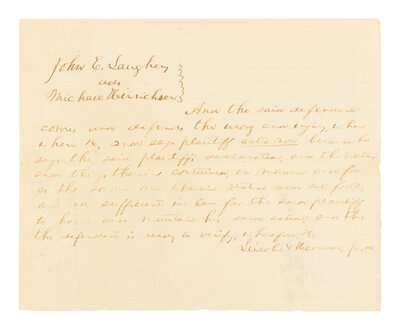 John E. Laughery
ads
Michael Hinrichsen
And the said defendant
comes and defends the wrong and injury, when
where &c, and says plaintiff actio non because he
says the said plaintiff's declaration, and the matters
and things therein contained, in manner and form
as the same are therein stated and set forth,
are not sufficient in law for the said plaintiff
to have and maintain his said action, and this
the defendant is ready to verify, wherefore &c
Lincoln & Herndon, p.d.